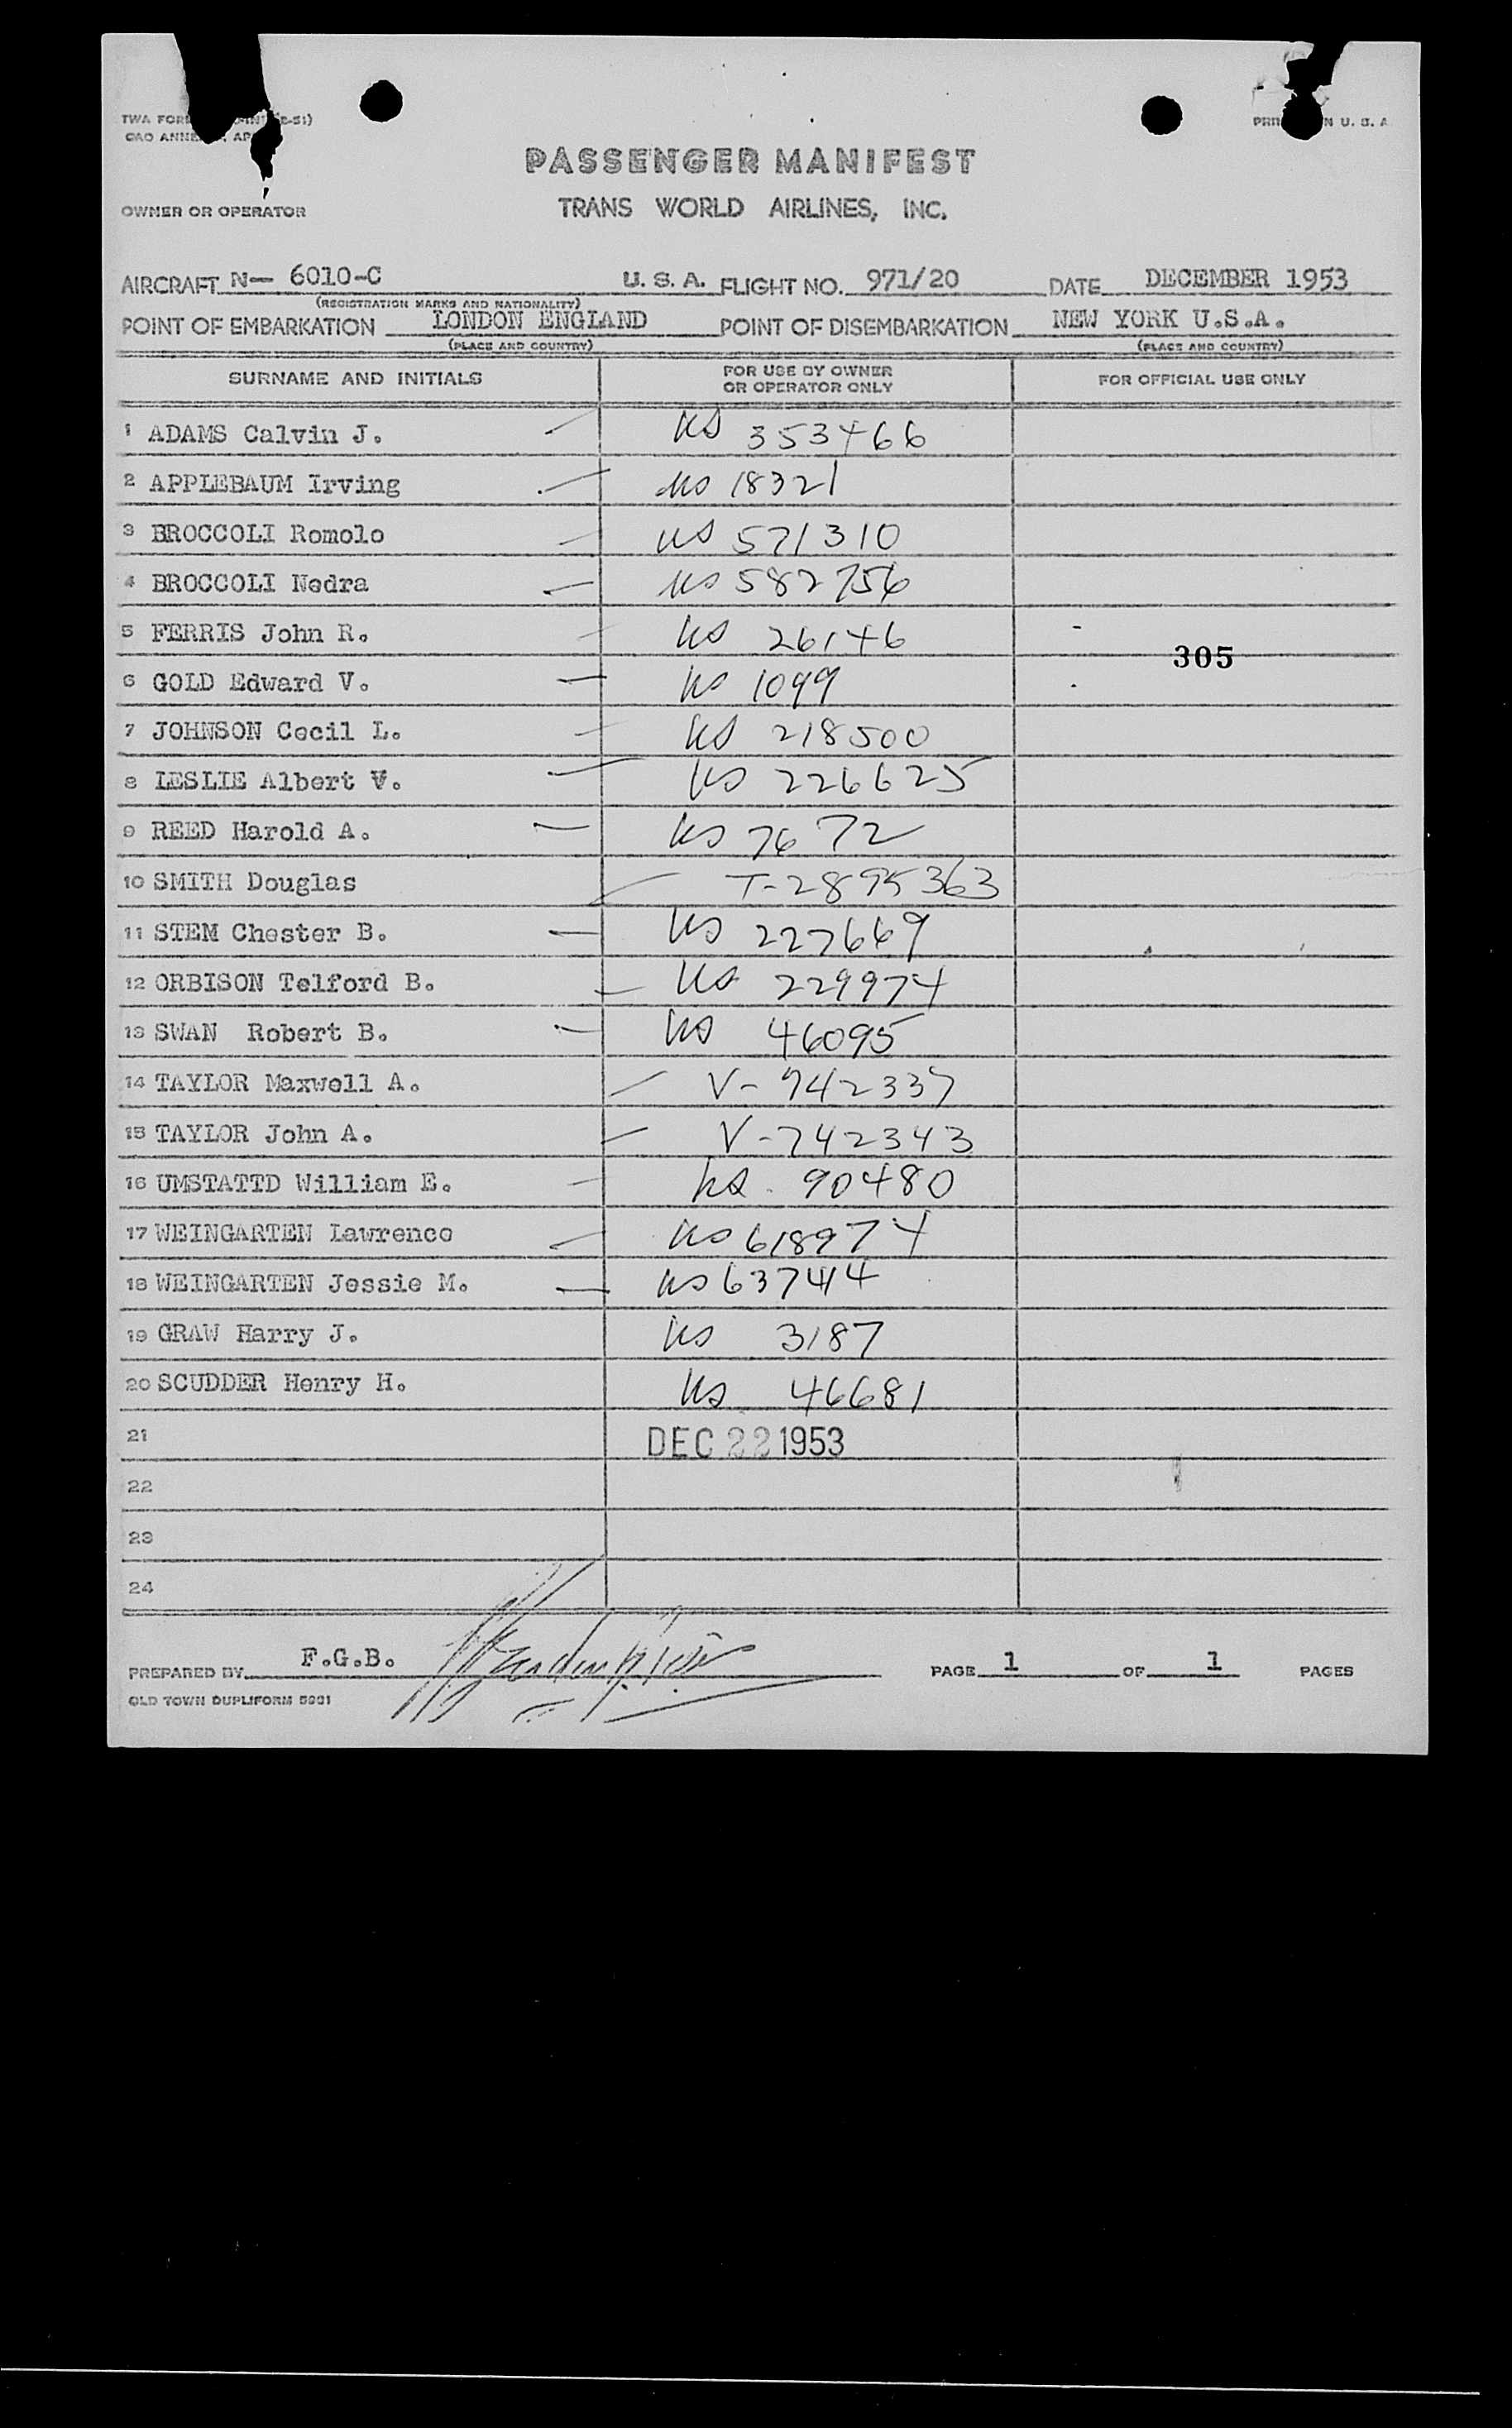 TWA FOR
PRI N U. S. A.
PASSENGER MANIFEST
OWNER OR OPERATOR
TRANS WORLD AIRLINES, INC.
AIRCRAFT N— 6010-C U. S. A. FLIGHT NO. 971/20 DATE DECEMBER 1953
(REGISTRATION MARKS AND NATIONALITY)
POINT OF EMBARKATION LONDON ENGLAND POINT OF DISEMBARKATION NEW YORK U.S.A.
(PLACE AND COUNTRY) (PLACE AND COUNTRY)
SURNAME AND INITIALS FOR USE BY OWNER OR OPERATOR ONLY FOR OFFICIAL USE ONLY
1 ADAMS Calvin J. US 353466
2 APPLEBAUM Irving US 18321
3 BROCCOLI Romolo US 571310
4 BROCCOLI Nedra US 582756
5 FERRIS John R. US 26146
305
6 GOLD Edward V. US 1099
7 JOHNSON Cecil L. US 218500
8 LESLIE Albert V. US 226625
9 REED Harold A. US 7672
10 SMITH Douglas T-2895363
11 STEM Chester B. US 227669
12 ORBISON Telford B. US 229974
13 SWAN Robert B. US 46095
14 TAYLOR Maxwell A. V-742337
15 TAYLOR John A. V-742343
16 UMSTATTD William E. US 90480
17 WEINGARTEN Lawrence US 618974
18 WEINGARTEN Jessie M. US 637414
19 GRAW Harry J. US 3187
20 SCUDDER Henry H. US 46681
21 DEC 22 1953
22
23
24
PREPARED BY F.G.B. PAGE 1 OF 1 PAGES
OLD TOWN DUPLIFORM 5981